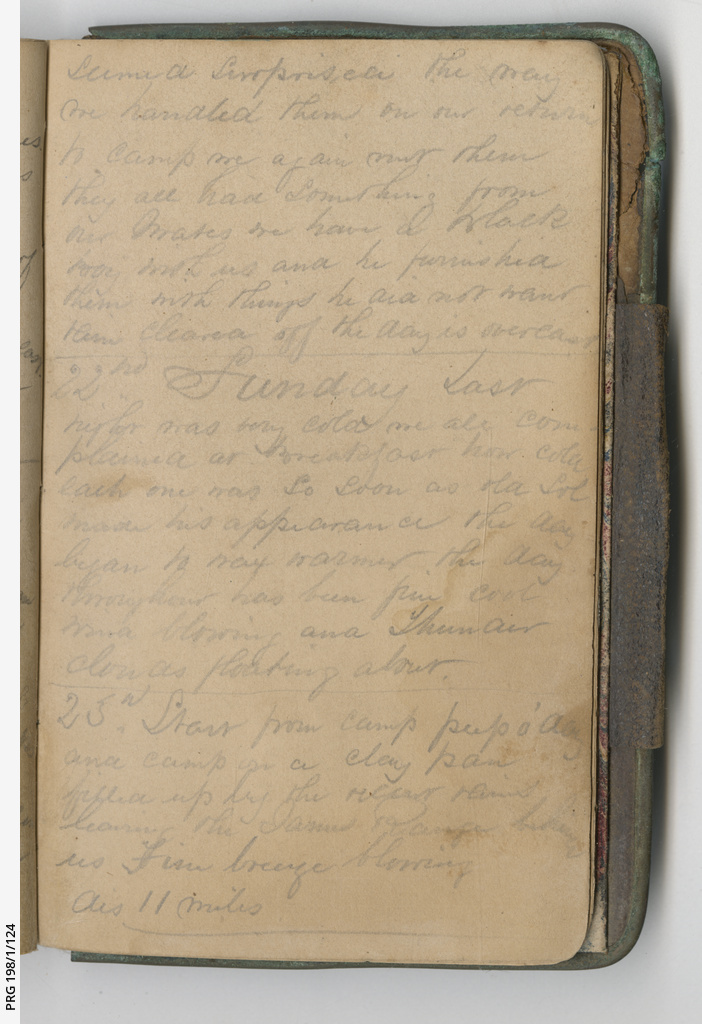 seemed surprised the way
we handled them on our return
to camp we again met them
they all had something from
our Mates we have a black
boy with us and he furnished
them with things he did not want
rain cleared off the day is overcast
22nd Sunday Last
night was very cold we all com
plained at Breakfast how cold
each one was So Soon as old Sol
made his appearance the day
began to wax warmer the day
throughout has been fine cool
wind blowing and Thunder
clouds floating about.
23rd Start from camp peep o'day
and camp on a clay pan
filled up by the recent rains
leaving the James Range behind
us Fine breeze blowing
dis 11 miles
PRG 198/1/124